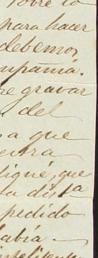 sobre la
para hacer
debemos
mpañia.
re gravar
del
a que
stra
lique, que
la dista
pedido
abia